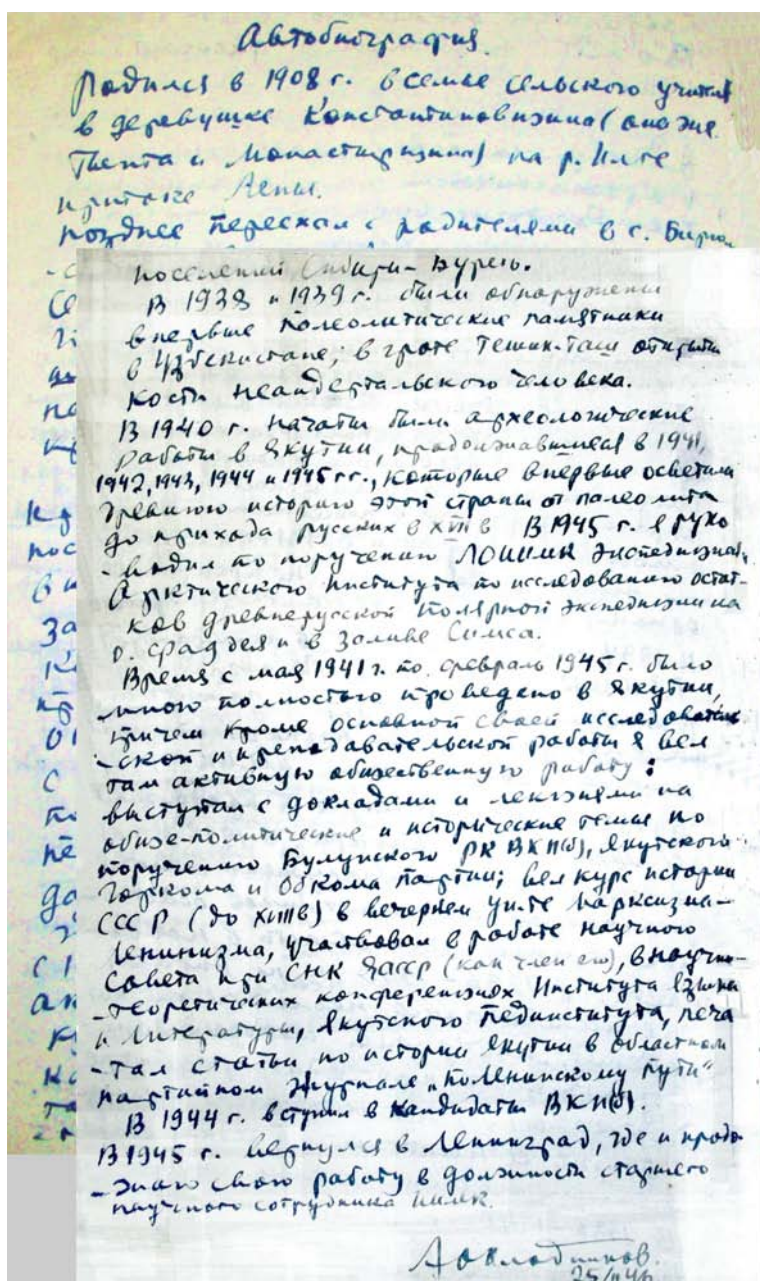 Автобиография.
Родился в 1908 г. в семье сельского учителя
в деревушке Константиновщина (она же
Тыпта и Монастырщина) на р. Илге
притоке Лены.
позднее переехал с родителями в с. Бирю
поселений Сибири - Буреть.
В 1938 и 1939 г. были обнаружены
впервые палеолитические памятники
в Узбекистане; в гроте Тешик-Таш открыты
кости неандертальского человека.
В 1940 г. начаты были археологические
работы в Якутии, продолжавшиеся в 1941,
1942, 1943, 1944 и 1945 гг., которые впервые осветили
древнюю историю этой страны от палеолита
до прихода русских в XVII в В 1945 г. я руко
-водил по поручению ЛОИИМК экспедицией
Арктического института по исследованию остат-
ков древнерусской полярной экспедиции на
о. Фаддея и в заливе Симса.
Время с мая 1941 г. по февраль 1945 г. было
мною полностью проведено в Якутии,
причем кроме основной своей исследователь
-ской и преподавательской работы я вел
там активную общественную работу:
выступал с докладами и лекциями на
обще-политические и исторические темы по
поручению Булунского РК ВКП(б), Якутского
Горкома и Обкома партии; вел курс истории
СССР (до XVIIIв) в вечернем ун-те Марксизма-
Ленинизма, участвовал в работе научного
Совета при СНК ЯАССР (как член его), в научно-
-теоретических конференциях Института языка
и литературы, Якутского пединститута, печа
-тал статьи по истории Якутии в областном
партийном журнале „По Ленинскому пути"
В 1944 г. вступил в кандидаты ВКП(б).
В 1945 г. вернулся в Ленинград, где и продо
-лжаю свою работу в должности старшего
научного сотрудника ИИМК.
А Окладников.